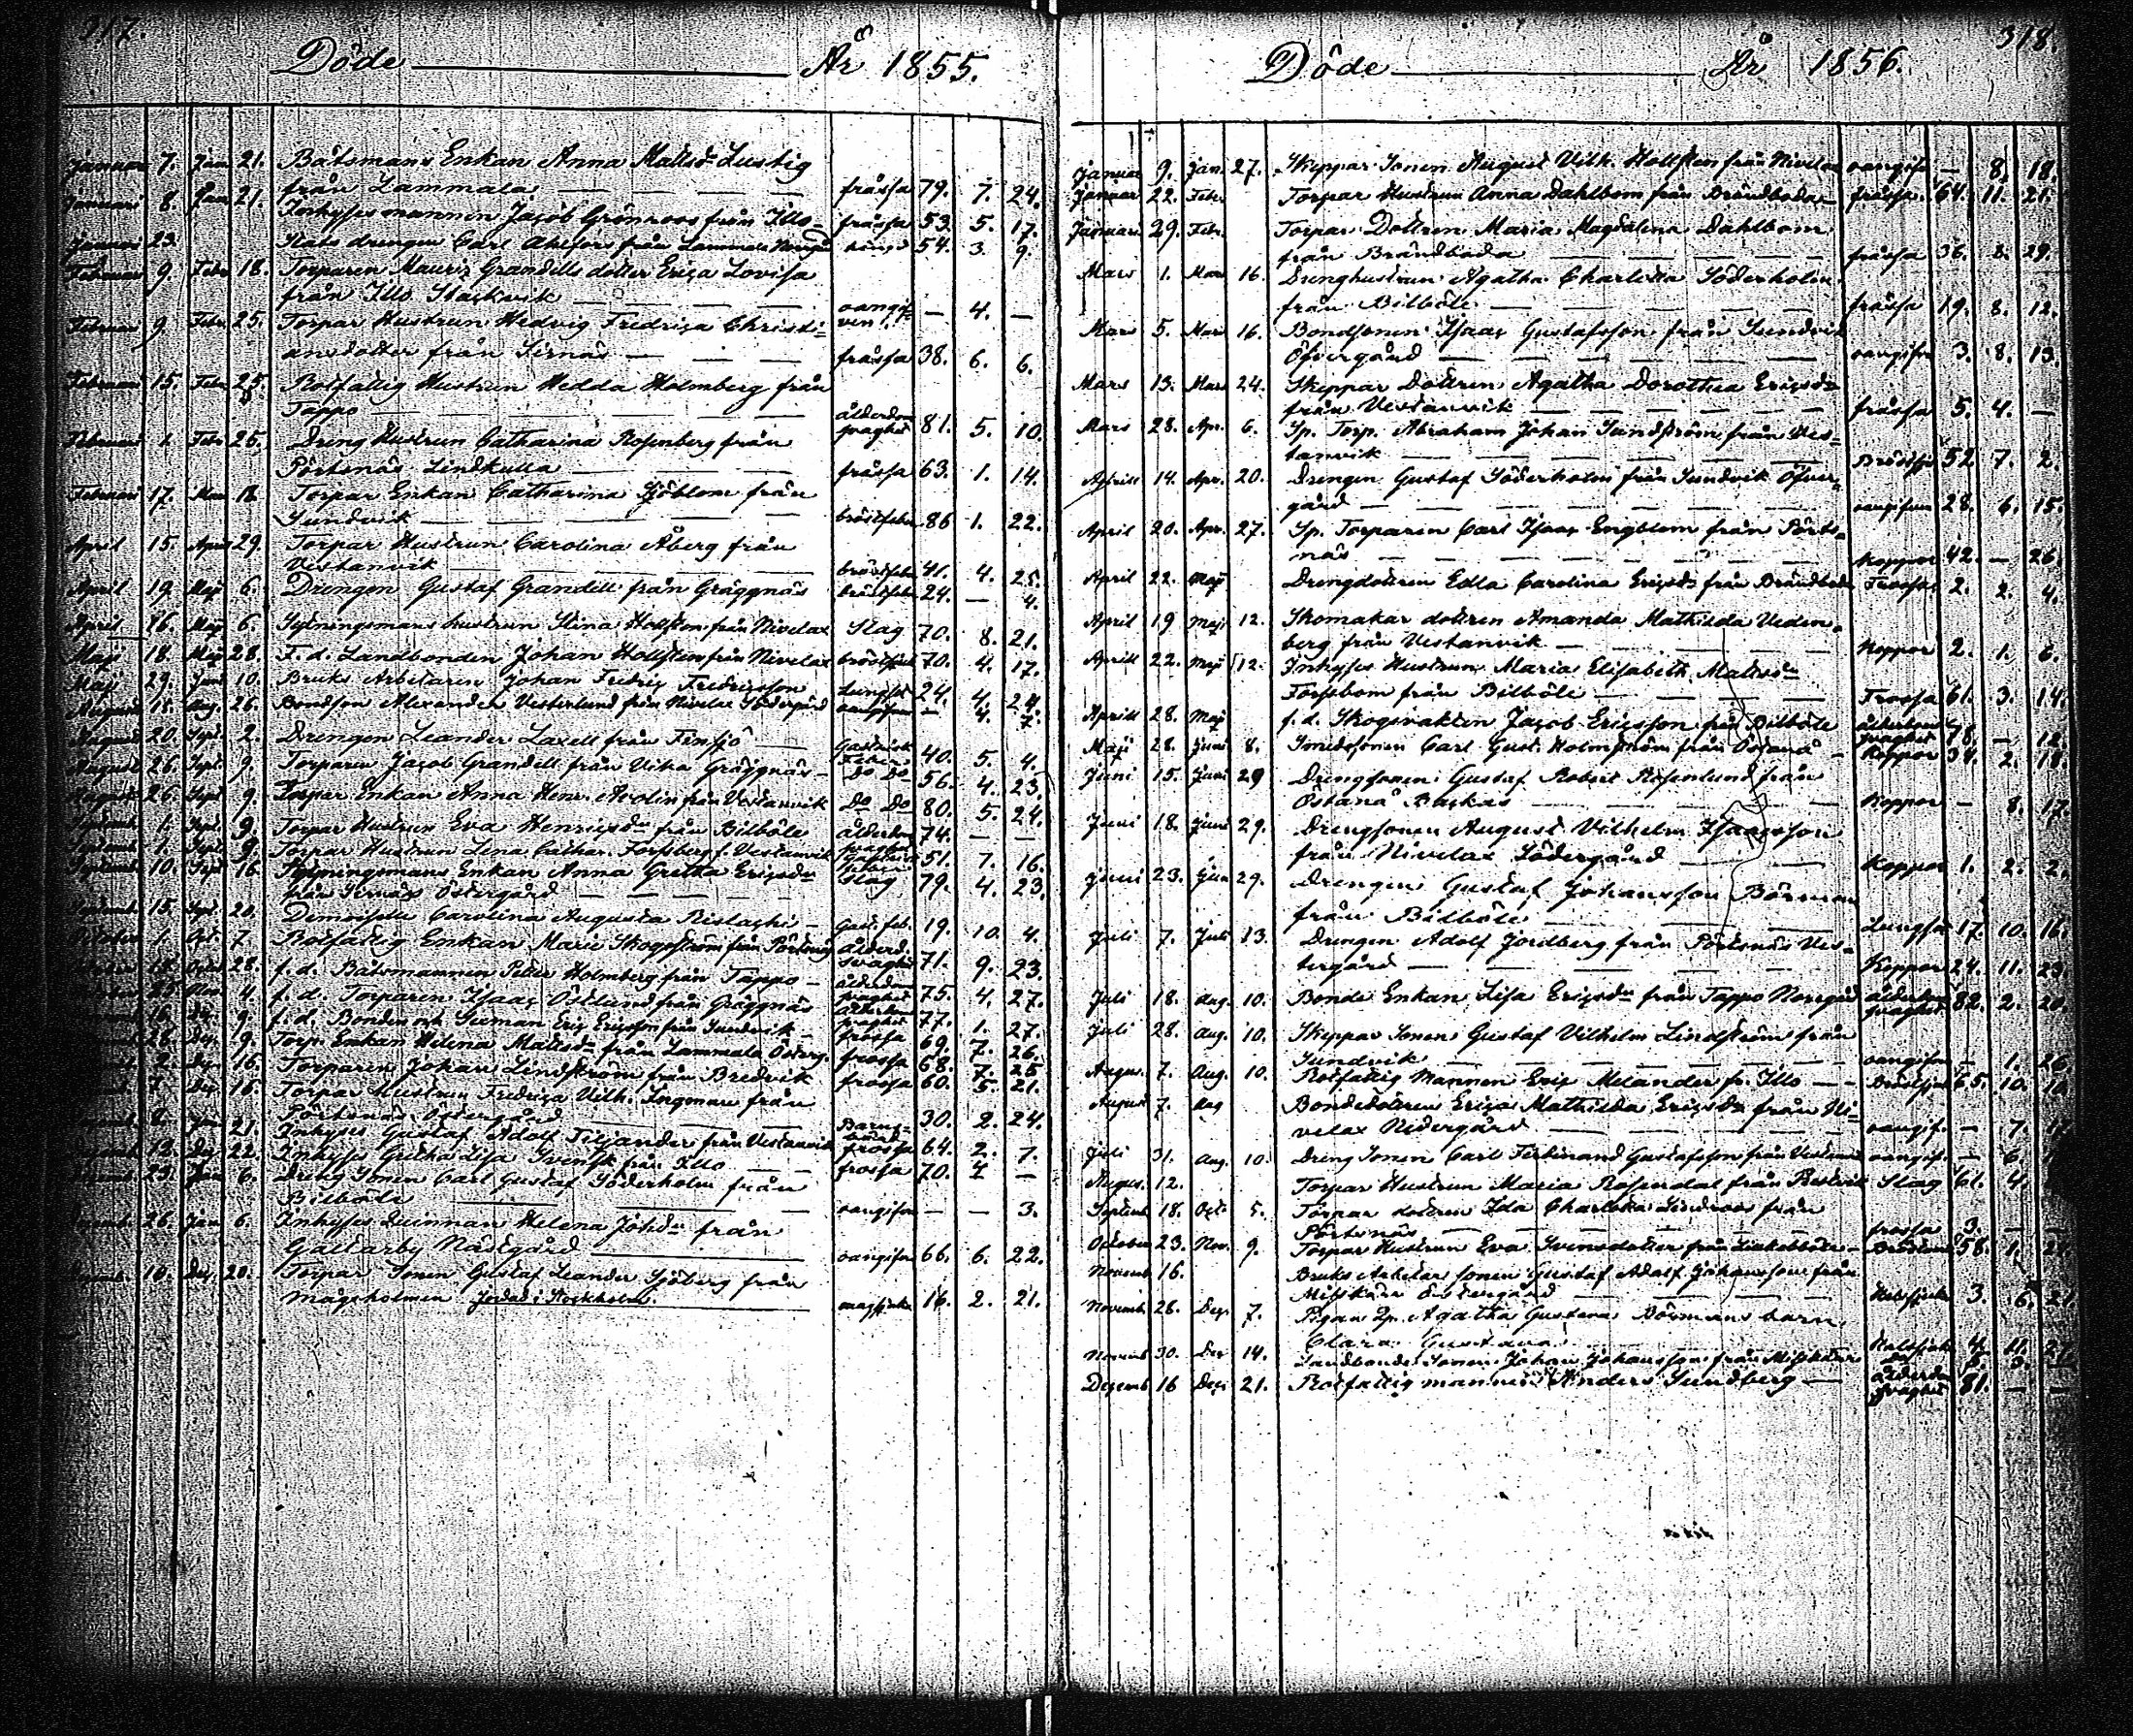 317.
Döde År 1855.
Januari 7. Jan 21. Båtsmans Enkan Anna Mattsdr Lustig
från Lammala frossa 79. 7. 24.
Januari 8. Jan 21. Inhyses mannen Jacob Grönroos från Illo frossa 53. 5. 17.
Januari 23. Stats drengen Carl Ahlfors från Lammala 54. 3. 9.
Februari 9. Febr 18. Torparen Mauriz Grandells dotter Erica Lovisa
från Illo Starkvik oangif-
ven — 4. —
Februari 9. Febr. 25. Torpar Hustrun Hedvig Fredrica Christi-
ansdotter från Sernäs frossa 38. 6. 6.
Februari 15. Febr 25. Rotfattig Hustrun Hedda Holmberg från
Tappo ålderdoms
svaghet 81. 5. 10.
Februari Febr 25. Dreng Hustrun Catharina Rosenberg från
Pörtsnäs Lindkulla frossa 63. 1. 14.
Februari 17. Mar 18. Torpar Enkan Catharina Sjöblom från
Sundvik bröstfeber 86 1. 22.
April 15. April 29. Torpar Hustrun Carolina Åberg från
Vestanvik bröstfeber 41. 4. 25.
April 19. Maj 6. Drengen Gustaf Grandell från Gräggnäs bröstfeber 24. — 4.
April 26. Maj 6. Hustrun Stina Hollsten från Nivelax Slag 70. 8. 21.
Maj 18. Maj 28. F. d. Landbonden Johan Hollsten från Nivelax 70. 4. 17.
Maj 29. Juni 10. Bruks Arbetaren Johan Fredric Fredricsson Lungsot 24. 4. 24.
Augusti 18. Aug. 26. Bondson Alexander Vesterlund från Nivelax Södergård oangifven — 4. 7.
Augusti 20. Sept. 2. Drengen Leander Laxell från Finsjö Gastrisk
Feber 40. 5. 4.
Augusti 26. Sept. 9. Torparen Jacob Grandell från Vika Gräggnäs Do Do 56. 4. 23.
Augusti 26. Sept 9. Torpar Enkan Anna Henr. från Vestanvik Do Do 80. 5. 24.
Septemb. 1. Sept. 9. Torpar Hustrun Eva Henricsdr från Bilböle ålderdoms
svaghet 74. — —
Septemb. 1. Sept. 9. Torpar Hustrun Lena Cathar. Forssberg f. Vestanvik 51. 7. 16.
Septemb. 10. Sept 16. Enkan Anna Gretha Ericsdr Slag 79. 4. 23.
från Sernäs Östergård
Septemb. 15. Sept. 20. Demoiselle Carolina Augusta Gast. feb. 19. 10. 4.
October 1. Oct. 7. Rotfattig Enkan Marie Skogström från Pörtsnäs ålderd.
svaghet 71. 9. 23.
28. f. d. Båtsmannen Petter Holmberg från Tappo ålderdoms
svaghet 75. 4. 27.
Nov. 4. f. d. Torparen Isaac Östlund från Gräggnäs ålderdoms
svaghet 77. 1. 27.
Dec. 9. f. d. Bonden och Seeman Eric Ericsson från Sundvik frossa 69. 7. 26.
28. Dec. 9. Torp. Enkan Helena Mattsdr från Lammala Österg. frossa 68. 7. 25
2. Dec. 16. Torparen Johan Lindström från Bredvik frossa 60. 5. 21.
7. Dec. 16. Torpar Hustrun Fredrica Vilh. Ingman från
Pörtsnäs Östergård Barns-
börd 30. 2. 24.
8. Jan 21. Inhyses Gustaf Adolf Tiljander från Vestanvik frossa 64. 2. 7.
12. Dec 22. Inhyses Gretha Lisa Svensk från Illo frossa 70. 4 —
23. Jan 6. Dreng Sonen Carl Gustaf Söderholm från
Bilböle oangifven — — 3.
Decemb. 26. Jan 6. Inhyses Qvinnan Helena Johsdr från
Gallarby Nästgård oangifven 66. 6. 22.
Decemb. 10. Dec. 20. Torpar Sonen Gustaf Leander Sjöberg från
Mågsholmen Jordad i Stockholm. magsjuka 16. 2. 21.
318.
Döde År 1856.
Januar 9. Jan. 27. Skeppar Sonen August Vilh. Hollsten från Nivelax oangifv — 8. 18.
Januar 22. Febr Torpar Hustrun Anna Dahlbom från Brändboda frossa 64. 11. 21.
Januari 29. Febr. Torpar Dottren Maria Magdalena Dahlbom
från Brändboda frossa 36. 8. 29.
Mars 1. Mars 16. Drenghustrun Agatha Charlotta Söderholm
från Bilböle frossa 19. 8. 12.
Mars 5. Mars 16. Bondsonen Isaac Gustafsson från Sundvik
Öfvergård oangifven 3. 8. 13.
Mars 13. Mars 24. Skeppar Dottren Agatha Dorothea Ericsdr
från Vestanvik frossa 5. 4. —
Mars 28. Apr. 6. Sp. Torp. Abraham Johan Sundström från Ves-
tanvik 52. 7. 2.
Aprill 14. Apr. 20. Drengen Gustaf Söderholm från Sundvik Öfver-
gård oangifven 28. 6. 15.
April 20. Apr. 27. Sp. Torparen Carl Isaac Engblom från Pörts-
näs Koppor 42. — 26.
April 22. Maij Drengdottren Edla Carolina Ericsdr från Brändboda Frossa 2. 2. 4.
April 19 Maji 12. Skomakar dottren Amanda Mathilda Veden-
berg från Vestanvik Koppor 2. 1. 6.
Aprill 22. Maij 12. Inhyses Hustrun Maria Elisabeth Mattsdr
Forssbom från Bilböle Frossa 61. 3. 14.
Aprill 28. Maij f. d. Skogsvakten Jacob Ericsson från Bilböle ålderdoms
svaghet 78. — 12.
Maji 28. Juni 8. Smedsonen Carl Gust. Holmström från Östanå Koppor 2. 18.
Juni 15. Juni 29 Drengsonen Gustaf Robert Rosenlund från
Östanå Backas Koppor — 8. 17.
Juni 18. Juni 29. Drengsonen August Vilhelm Isaacsson
från Nivelax Södergård Koppor 1. 2. 2.
Juni 23. Jun 29. Drengen Gustaf Johansson Börman
från Bilböle Lungsot 17. 10. 16.
Juli 7. Juli 13. Drengen Adolf Jordberg från Pörtsnäs Ves-
tergård Koppor 24. 11. 23.
Juli 18. Aug. 10. Bonde Enkan Lisa Ericsdr från Tappo Norrgård ålderdoms
svaghet 82. 2. 20.
Juli 28. Aug. 10. Skeppar Sonen Gustaf Vilhelm Lindström från
Sundvik oangifven — 1. 26.
Augus. 7. Aug. 10. Rotfattig Mannen Eric Melander fr. Illo 65. 10. 10
August 7. Aug Bondedottren Erica Mathilda Ericsdr från Ni-
velax Nidergård oangif. — 7.
Juli 31. Aug. 10. Dreng Sonen Carl Ferdinand Gustafsson från oangif. — 6
Augus. 12. Torpar Hustrun Maria Rosendal från Slag 61. 4.
Septemb. 18. Oct. 5. Torpar dottren Ida Charlotta Lindroos från
Pörtsnäs frossa 3. — —
October 23. Nov. 9. Torpar Hustrun Eva Svensdotter från 58. 1.
Novemb. 16. Bruks Arbetar Sonen Gustaf Adolf Johansson från
Misskärr Östergård Halssjuka 3. 6. 21.
Novemb. 26. Dec. 7. Pigan Agatha Gustava Börmans barn
Clara Gustava Halssjuk 4. 11.
Novemb 30. Dec 14. Landbonde Sonen Johan Johansson från Misskärr
Decemb 16 Dec 21. Rotfattig mannen Anders Sundberg ålderdoms
svaghet 81. — —